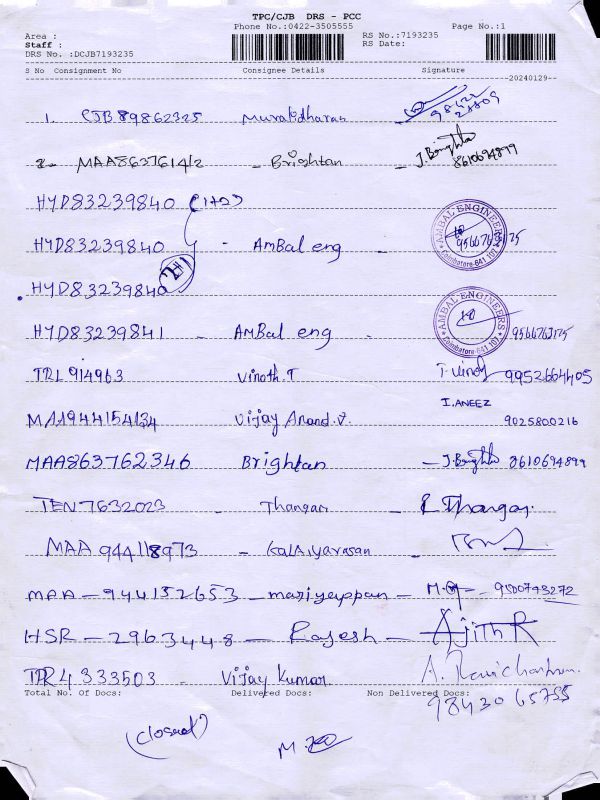 TPC/CJB DRS - PCC
Phone No.:0422-3505555 Page No.:1
Area : RS No.:7193235
Staff : RS Date:
DRS No. :DCJB7193235
S No Consignment No Consignee Details Signature
20240129
1. CJB 89862325 Muralidharan
2- MAA863761412 - Brightan - J. Brightan 8610694899
HYD83239840 (1+2)
HYD83239840 - AmBal eng - AMBAL ENGINEERS Coimbatore-641 107 9566763175
HYD83239840 2+1
HYD83239841 - AmBal eng - AMBAL ENGINEERS Coimbatore-641 107 9566763175
TRL 914963 Vinoth.T T. Vinoth 9952664405
MAA944154134 Vijay Anand.V. I.ANEEZ 9025800216
MAA863762346 Brightan - J.Brightan 8610694899
TEN7632023 - Thangam -
MAA 944118973 - Kalaiyarasan -
MAA - 944152653 - mariyappan - 9500743272
HSR - 2963448 - Rajesh - Ajith R
TPR4333503 - Vijay Kumar A. Ravichandran.
Total No. Of Docs: Delivered Docs: Non Delivered Docs:
9843065755
(closed)